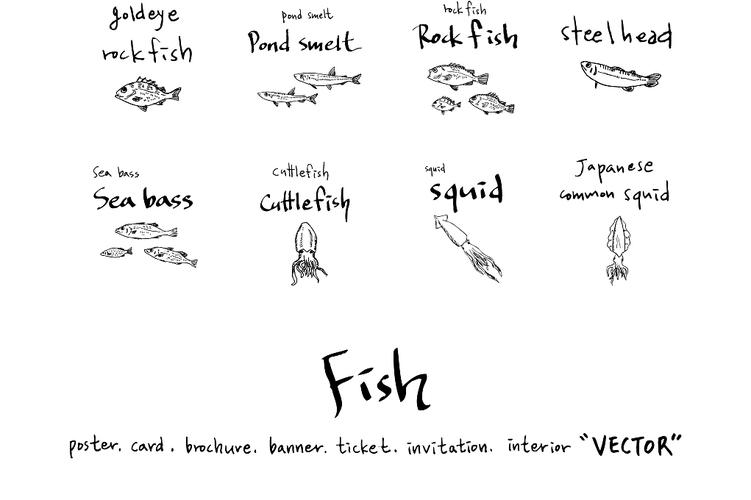 goldeye
rockfish
pond smelt
Pond smelt
rockfish
Rockfish
steelhead
Sea bass
Sea bass
cuttlefish
cuttlefish
squid
squid
Japanese
common squid
Fish
poster. card. brochure. banner. ticket. invitation. interior "VECTOR"